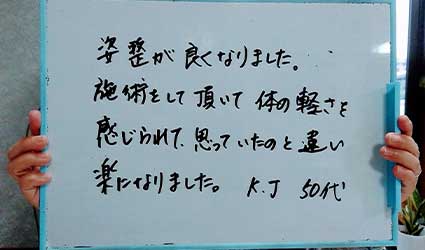 姿整が良くなりました。
施術をして頂いて 体の軽さを
感じられて、思っていたのと違い
楽になりました。 K.J 50代